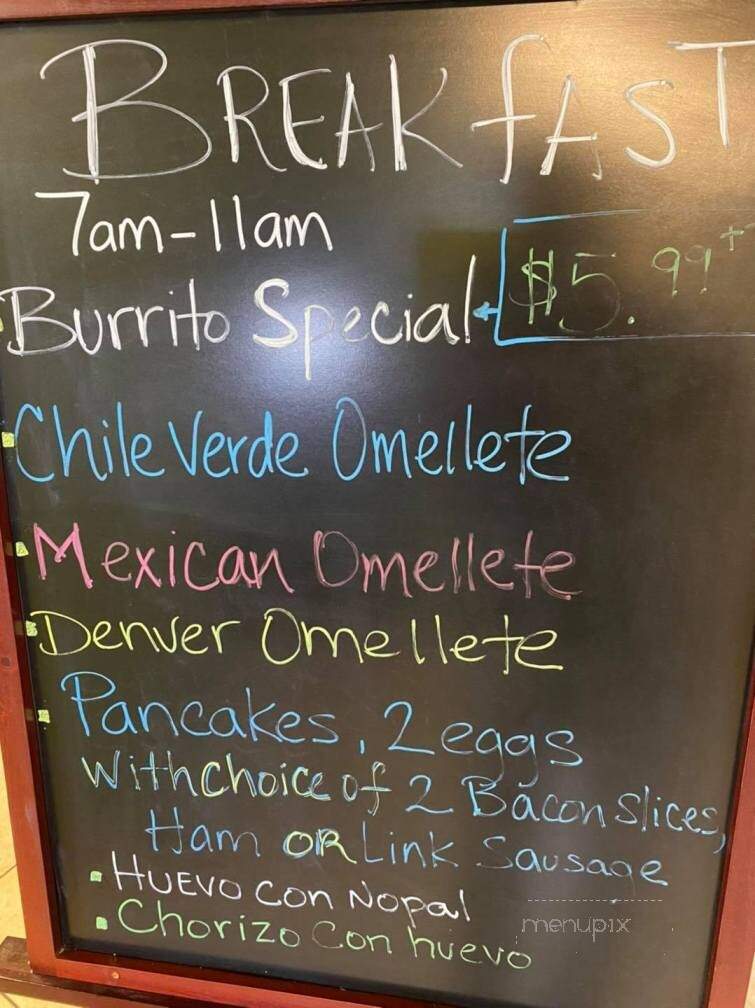 BREAKfAST
7am-11am
$5.99+
Burrito Special
Chile Verde Omellete
Mexican Omellete
Denver Omellete
Pancakes, 2 eggs
With choice of 2 Bacon Slices,
Ham OR Link Sausage
• HUEVO CON Nopal
• Chorizo Con huevo
menupix